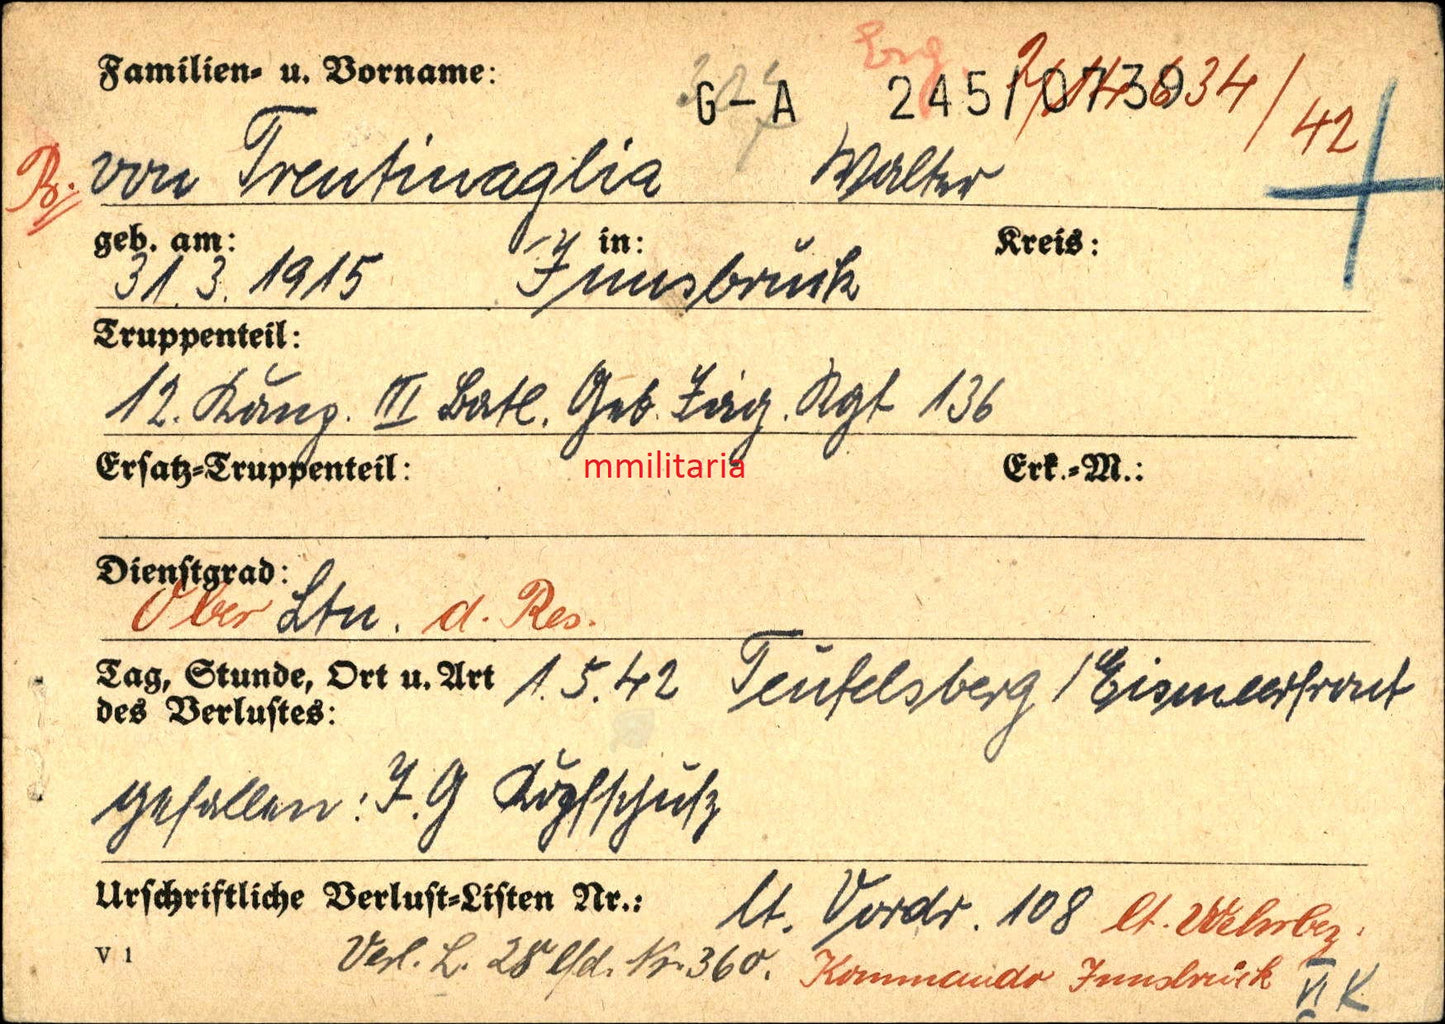 Familien- u. Vorname:
G-A 245/0739 /42
B. von Trentinaglia Walter
geb. am: in: Kreis:
31. 3. 1915 Innsbruck
Truppenteil:
12. Komp. III Batl. Geb. Jäg. Rgt 136
Ersatz-Truppenteil: mmilitaria Erk.-M.:
Dienstgrad:
Ober Ltn. d. Res.
Tag, Stunde, Ort u. Art 1.5.42 Teufelsberg / Eismeerfront
des Verlustes:
gefallen: I.G Kopfschuß
Urschriftliche Verlust-Listen Nr.: lt. Vordr. 108 lt. Wehrbez.
V 1 Verl. L. 28 lfd. Nr. 360. Kommando Innsbruck VI K